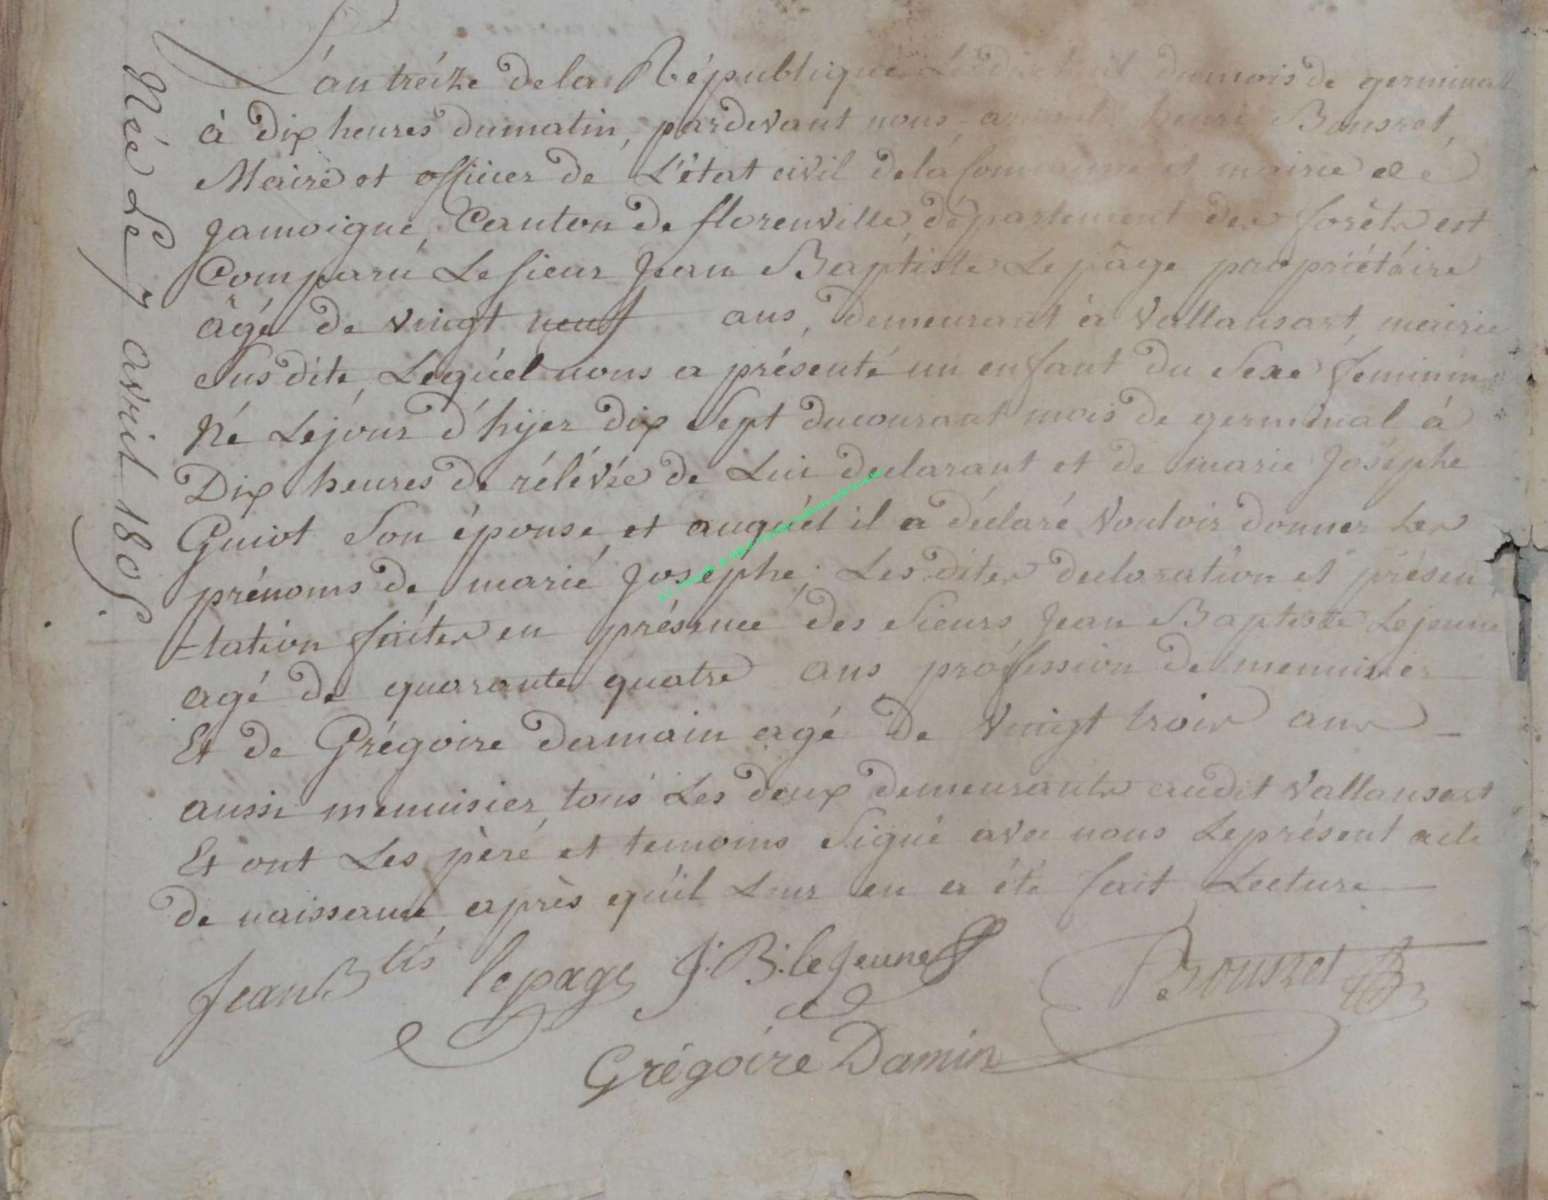 Née Le 7 avril 1805.
L'an treize de la République Le dix huit du mois de germinal
à dix heures du matin, pardevant nous henri Bousret,
Maire et officier de L'état civil de la Commune et mairie de
Jamoigne, Canton de florenville département des forêts est
Comparu Le sieur Jean Baptiste Le page propriétaire
âgé de vingt neuf ans, demeurant à Vallansart mairie
Susdite, Lequel nous a présenté un enfant du Sexe feminin
Né Lejour d'hyer dix Sept ducourant mois de germinal à
Dix heures de rélévée de Lui declarant et de marie Joséphe
Guiot Son épouse, et auquél il a déclaré Vouloir donner Les
prénoms de marie Joséphe; Les dites declaration et présen
-tation faites en présence des Sieurs Jean Baptiste Lejeune
agé de quarante quatre ans proffession de menuisier
Et de Grégoire damain agé de Vingt trois ans
aussi menuisier, tous Les deux demeurants audit Vallansart
Et ont Les père et temoins Signé avec nous Leprésent acte
de naissance après qu'il Leur en a été fait Lecture
Jean Btis lepage J: B: leJeune Bousret
Grégoire Damin